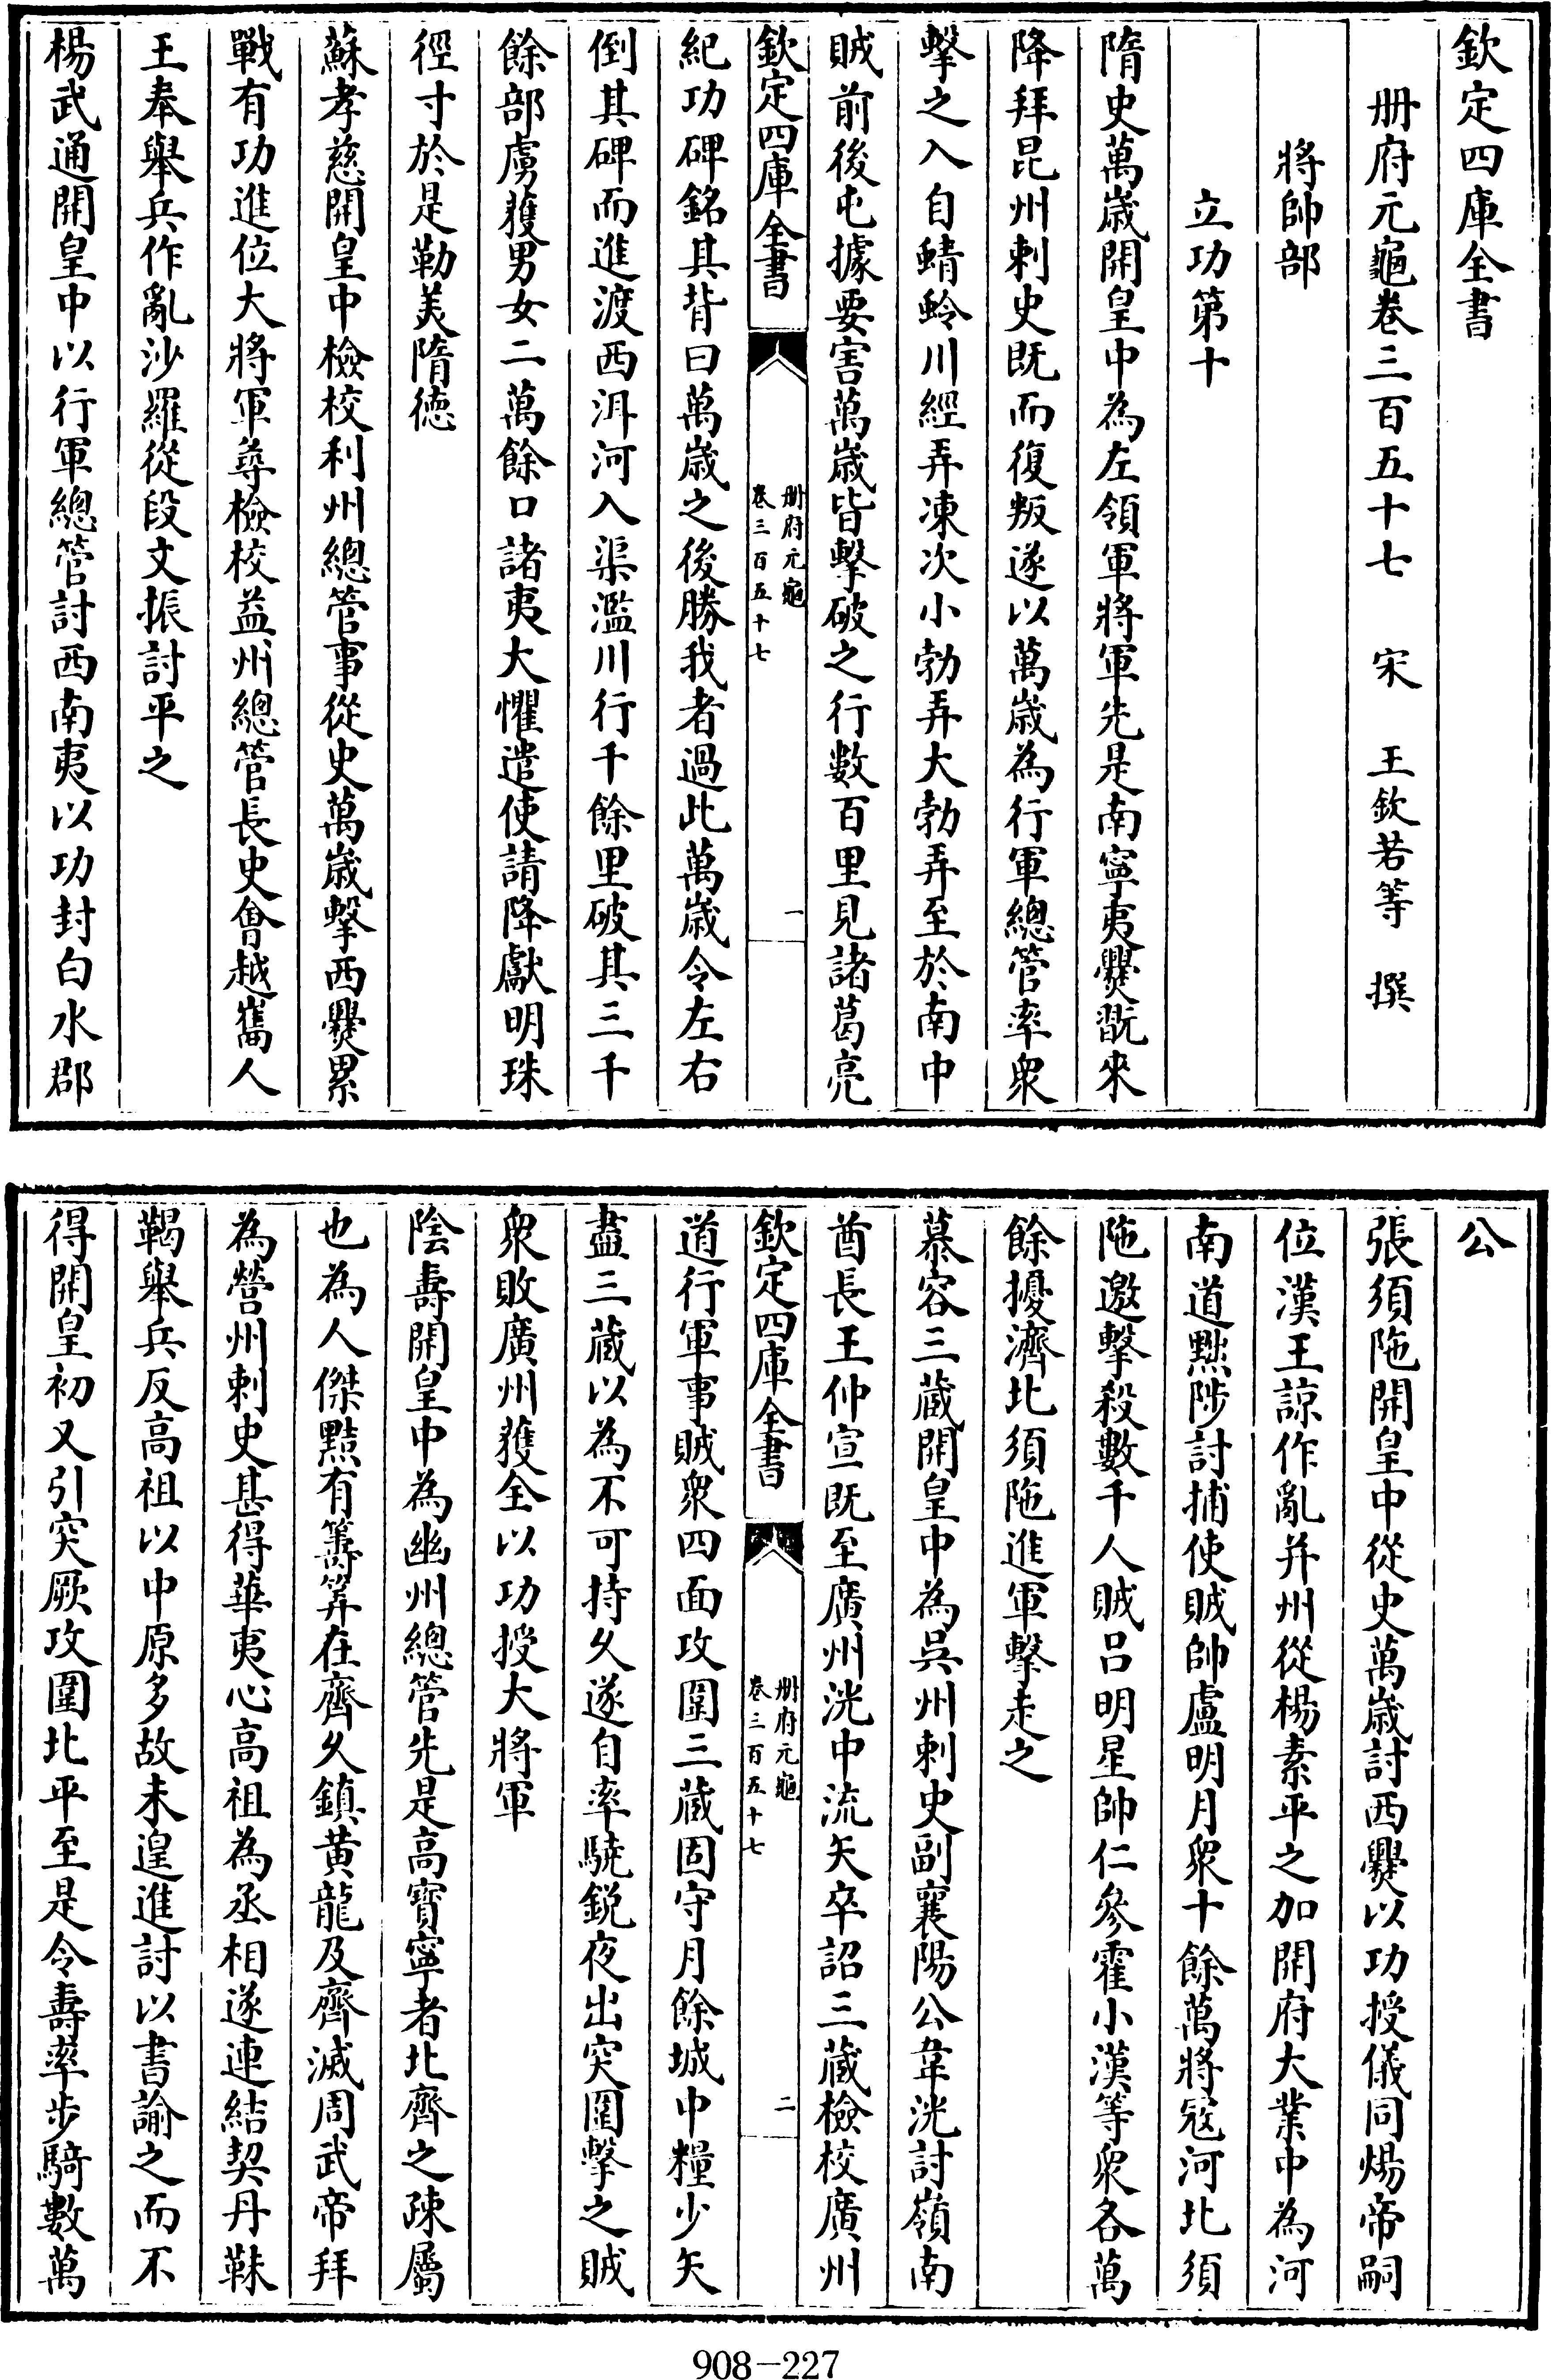 欽定四庫全書
册府元龜卷三百五十七　宋　王欽若等　撰
將帥部
立功第十
隋史萬歲開皇中為左領軍將軍先是南寧夷爨翫來
降拜昆州刺史既而復叛遂以萬歲為行軍總管率衆
擊之入自蜻蛉川經弄凍次小勃弄大勃弄至於南中
賊前後屯據要害萬歲皆擊破之行數百里見諸葛亮
欽定四庫全書　册府元龜卷三百五十七　一
紀功碑銘其背曰萬歲之後勝我者過此萬歲令左右
倒其碑而進渡西洱河入渠濫川行千餘里破其三千
餘部虜獲男女二萬餘口諸夷大懼遣使請降獻明珠
徑寸於是勒美隋徳
蘇孝慈開皇中檢校利州總管事從史萬歲擊西爨累
戰有功進位大將軍尋檢校益州總管長史會越嶲人
王奉舉兵作亂沙羅從段文振討平之
楊武通開皇中以行軍總管討西南夷以功封白水郡
公
張須陁開皇中從史萬歲討西爨以功授儀同煬帝嗣
位漢王諒作亂并州從楊素平之加開府大業中為河
南道黜陟討捕使賊帥盧明月衆十餘萬將寇河北須
陁邀擊殺數千人賊吕明星帥仁參霍小漢等衆各萬
餘擾濟北須陁進軍擊走之
慕容三藏開皇中為吳州刺史副襄陽公韋洸討嶺南
酋長王仲宣既至廣州洸中流矢卒詔三藏檢校廣州
欽定四庫全書　册府元龜卷三百五十七　二
道行軍事賊衆四面攻圍三藏固守月餘城中糧少矢
盡三藏以為不可持久遂自率驍鋭夜出突圍擊之賊
衆敗廣州獲全以功授大將軍
陰壽開皇中為幽州總管先是高寶寧者北齊之疎屬
也為人傑黠有籌筭在齊久鎮黃龍及齊滅周武帝拜
為營州刺史甚得華夷心高祖為丞相遂連結契丹靺
鞨舉兵反高祖以中原多故未遑進討以書諭之而不
得開皇初又引突厥攻圍北平至是令壽率步騎數萬
908-227